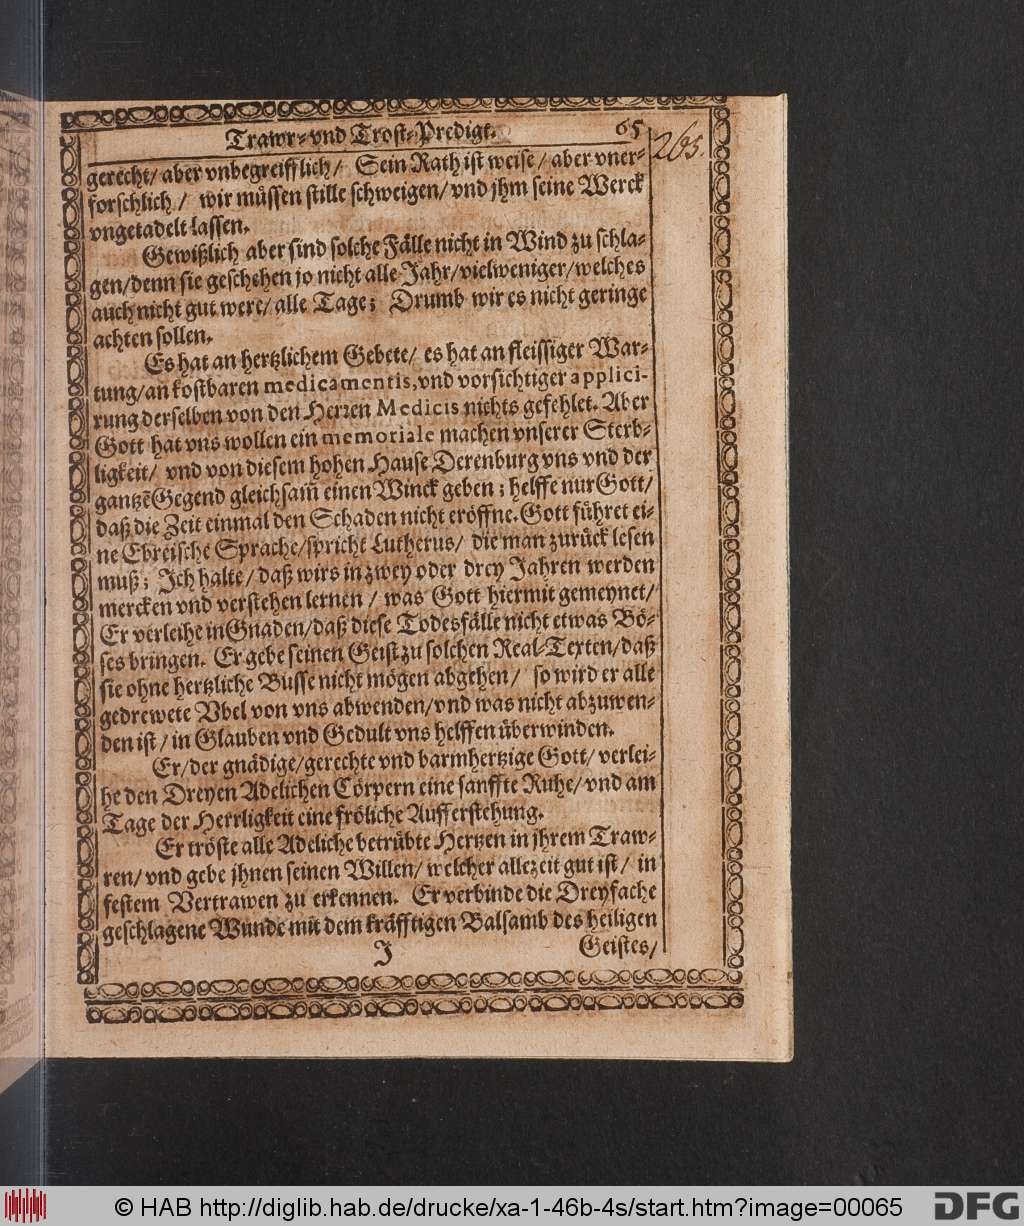 Trawr- vnd Trost-Predigt. 65
265.
gerecht/ aber vnbegreifflich/ Sein Rath ist weise/ aber vner-
forschlich/ wir müssen stille schweigen/ vnd jhm seine Werck
vngetadelt lassen.
Gewißlich aber sind solche Fälle nicht in Wind zu schla-
gen/ denn sie geschehen jo nicht alle Jahr/ vielweniger/ welches
auch nicht gut were/ alle Tage; Drumb wir es nicht geringe
achten sollen.
Es hat an hertzlichem Gebete/ es hat an fleissiger War-
tung/ an kostbaren medicamentis, vnd vorsichtiger applici-
rung derselben von den Herren Medicis nichts gefehlet. Aber
Gott hat vns wollen ein memoriale machen vnserer Sterb-
ligkeit/ vnd von diesem hohen Hause Derenburg vns vnd der
gantzẽ Gegend gleichsam̃ einen Winck geben; helffe nur Gott/
daß die Zeit einmal den Schaden nicht eröffne. Gott führet ei-
ne Ebreische Sprache/ spricht Lutherus/ die man zurück lesen
muß; Ich halte/ daß wirs in zwey oder drey Jahren werden
mercken vnd verstehen lernen/ was Gott hiermit gemeynet/
Er verleihe in Gnaden/ daß diese Todesfälle nicht etwas Bö-
ses bringen. Er gebe seinen Geist zu solchen Real-Texten/ daß
sie ohne hertzliche Busse nicht mögen abgehen/ so wird er alle
gedrewete Vbel von vns abwenden/ vnd was nicht abzuwen-
den ist/ in Glauben vnd Gedult vns helffen überwinden.
Er/ der gnädige/ gerechte vnd barmhertzige Gott/ verlei-
he den Dreyen Adelichen Cörpern eine sanffte Ruhe/ vnd am
Tage der Herrligkeit eine fröliche Aufferstehung.
Er tröste alle Adeliche betrübte Hertzen in jhrem Traw-
ren/ vnd gebe jhnen seinen Willen/ welcher allezeit gut ist/ in
festem Vertrawen zu erkennen. Er verbinde die Dreyfache
geschlagene Wunde mit dem kräfftigen Balsamb des heiligen
J Geistes/
© HAB http://diglib.hab.de/drucke/xa-1-46b-4s/start.htm?image=00065
DFG